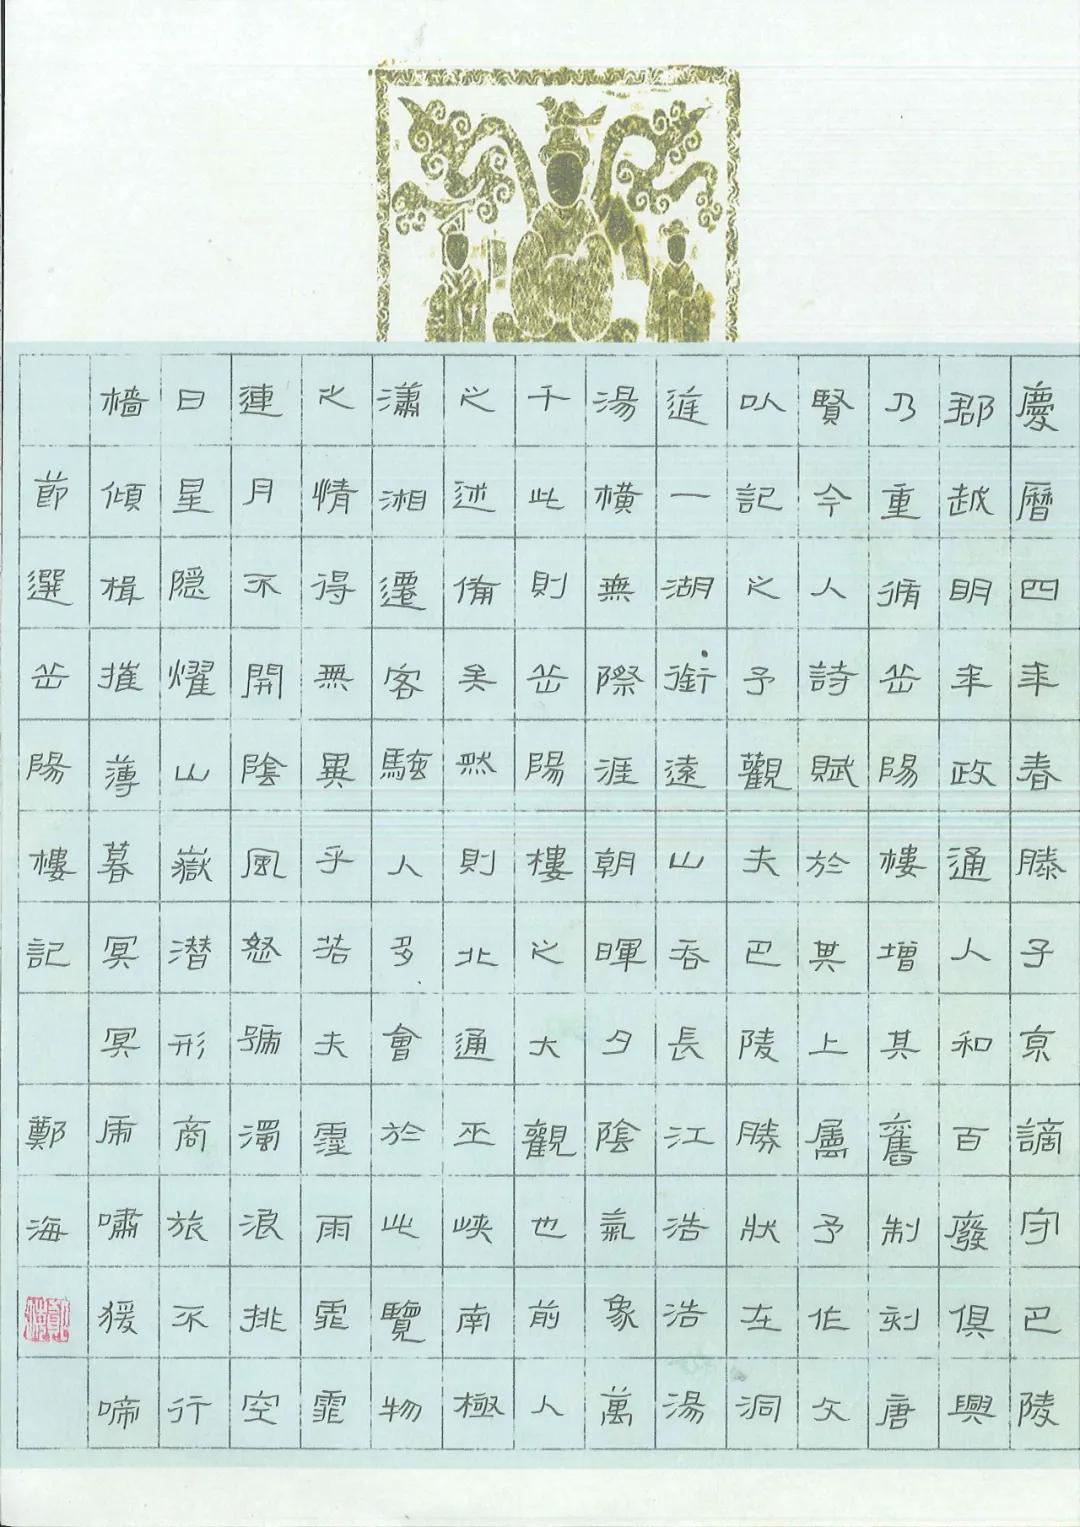 慶曆四年春滕子京謫守巴陵
郡越明年政通人和百廢俱興
乃重脩岳陽樓增其舊制刻唐
賢今人詩賦於其上屬予作文
以記之予觀夫巴陵勝狀在洞
庭一湖銜遠山吞長江浩浩湯
湯橫無際涯朝暉夕陰氣象萬
千此則岳陽樓之大觀也前人
之述備矣然則北通巫峽南極
瀟湘遷客騷人多會於此覽物
之情得無異乎若夫霪雨霏霏
連月不開陰風怒號濁浪排空
日星隱燿山嶽潜形商旅不行
檣傾楫摧薄暮冥冥虎嘯猨啼
節選岳陽樓記 鄭海